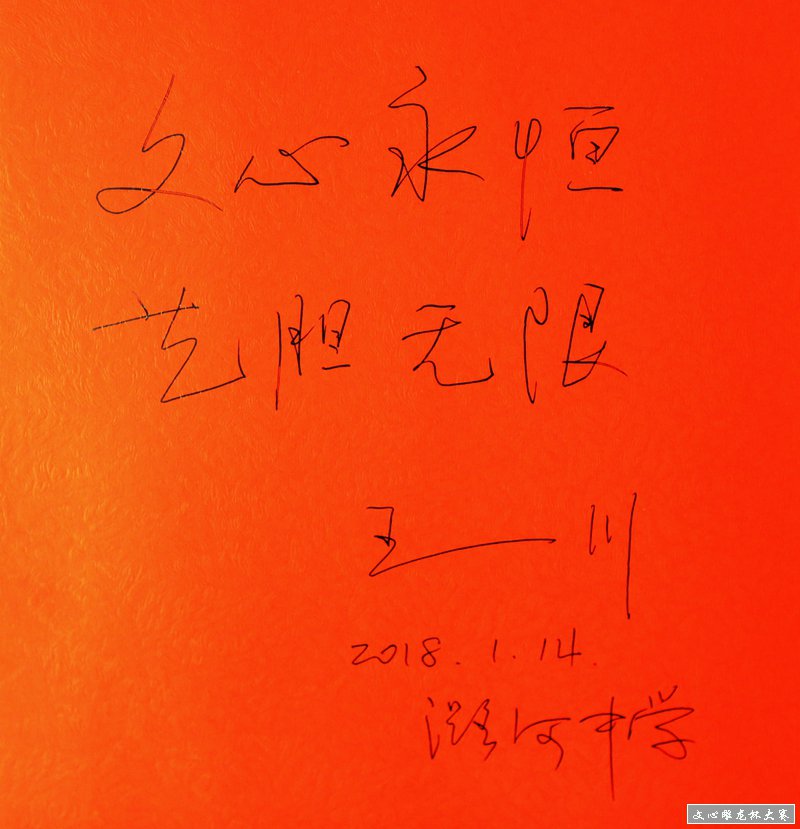 文心永恒
艺胆无限
王一川
2018.1.14.
潞河中学
文心雕龙杯大赛